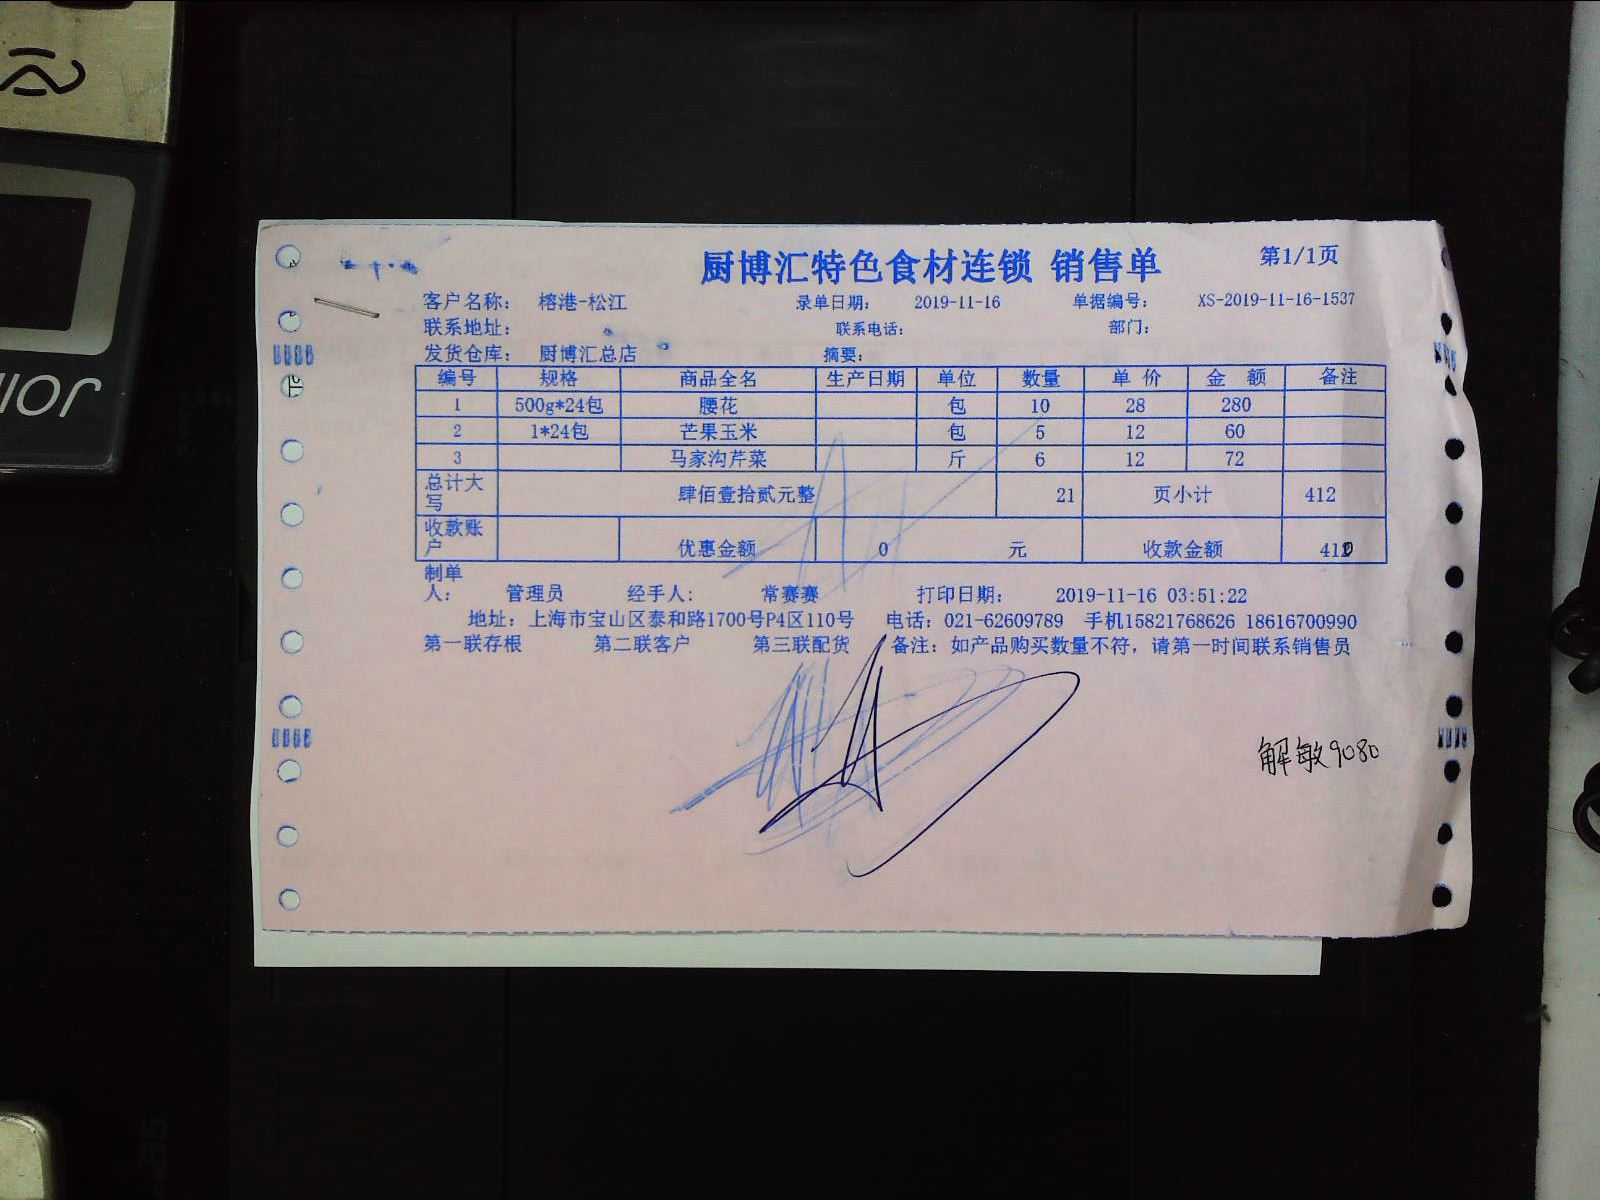 厨博汇特色食材连锁 销售单 第1/1页
客户名称: 榕港-松江 录单日期: 2019-11-16 单据编号: XS-2019-11-16-1537
联系地址: 联系电话: 部门:
发货仓库: 厨博汇总店 摘要:
编号 规格 商品全名 生产日期 单位 数量 单 价 金 额 备注
1 500g*24包 腰花 包 10 28 280
2 1*24包 芒果玉米 包 5 12 60
3 马家沟芹菜 斤 6 12 72
总计大写 肆佰壹拾贰元整 21 页小计 412
收款账户 优惠金额 0 元 收款金额
制单人: 管理员 经手人: 常赛赛 打印日期: 2019-11-16 03:51:22
地址: 上海市宝山区泰和路1700号P4区110号 电话: 021-62609789 手机15821768626 18616700990
第一联存根 第二联客户 第三联配货 备注: 如产品购买数量不符, 请第一时间联系销售员
解敏9080